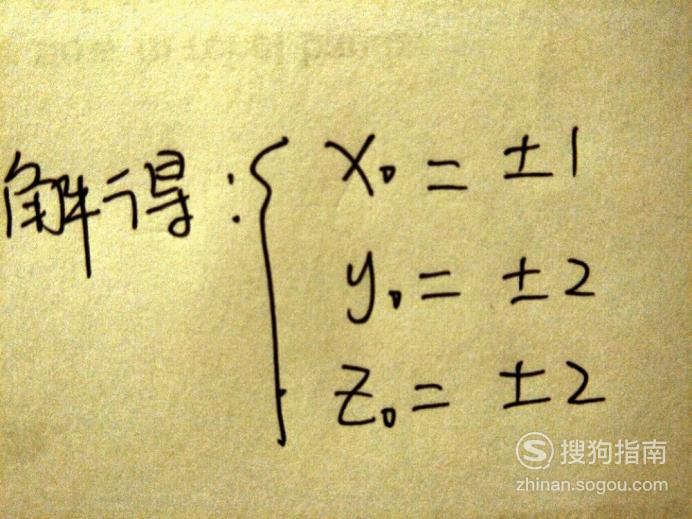 解得:{ x₀ = ±1
y₀ = ±2
z₀ = ±2
S 搜狗指南
zhinan.sogou.com